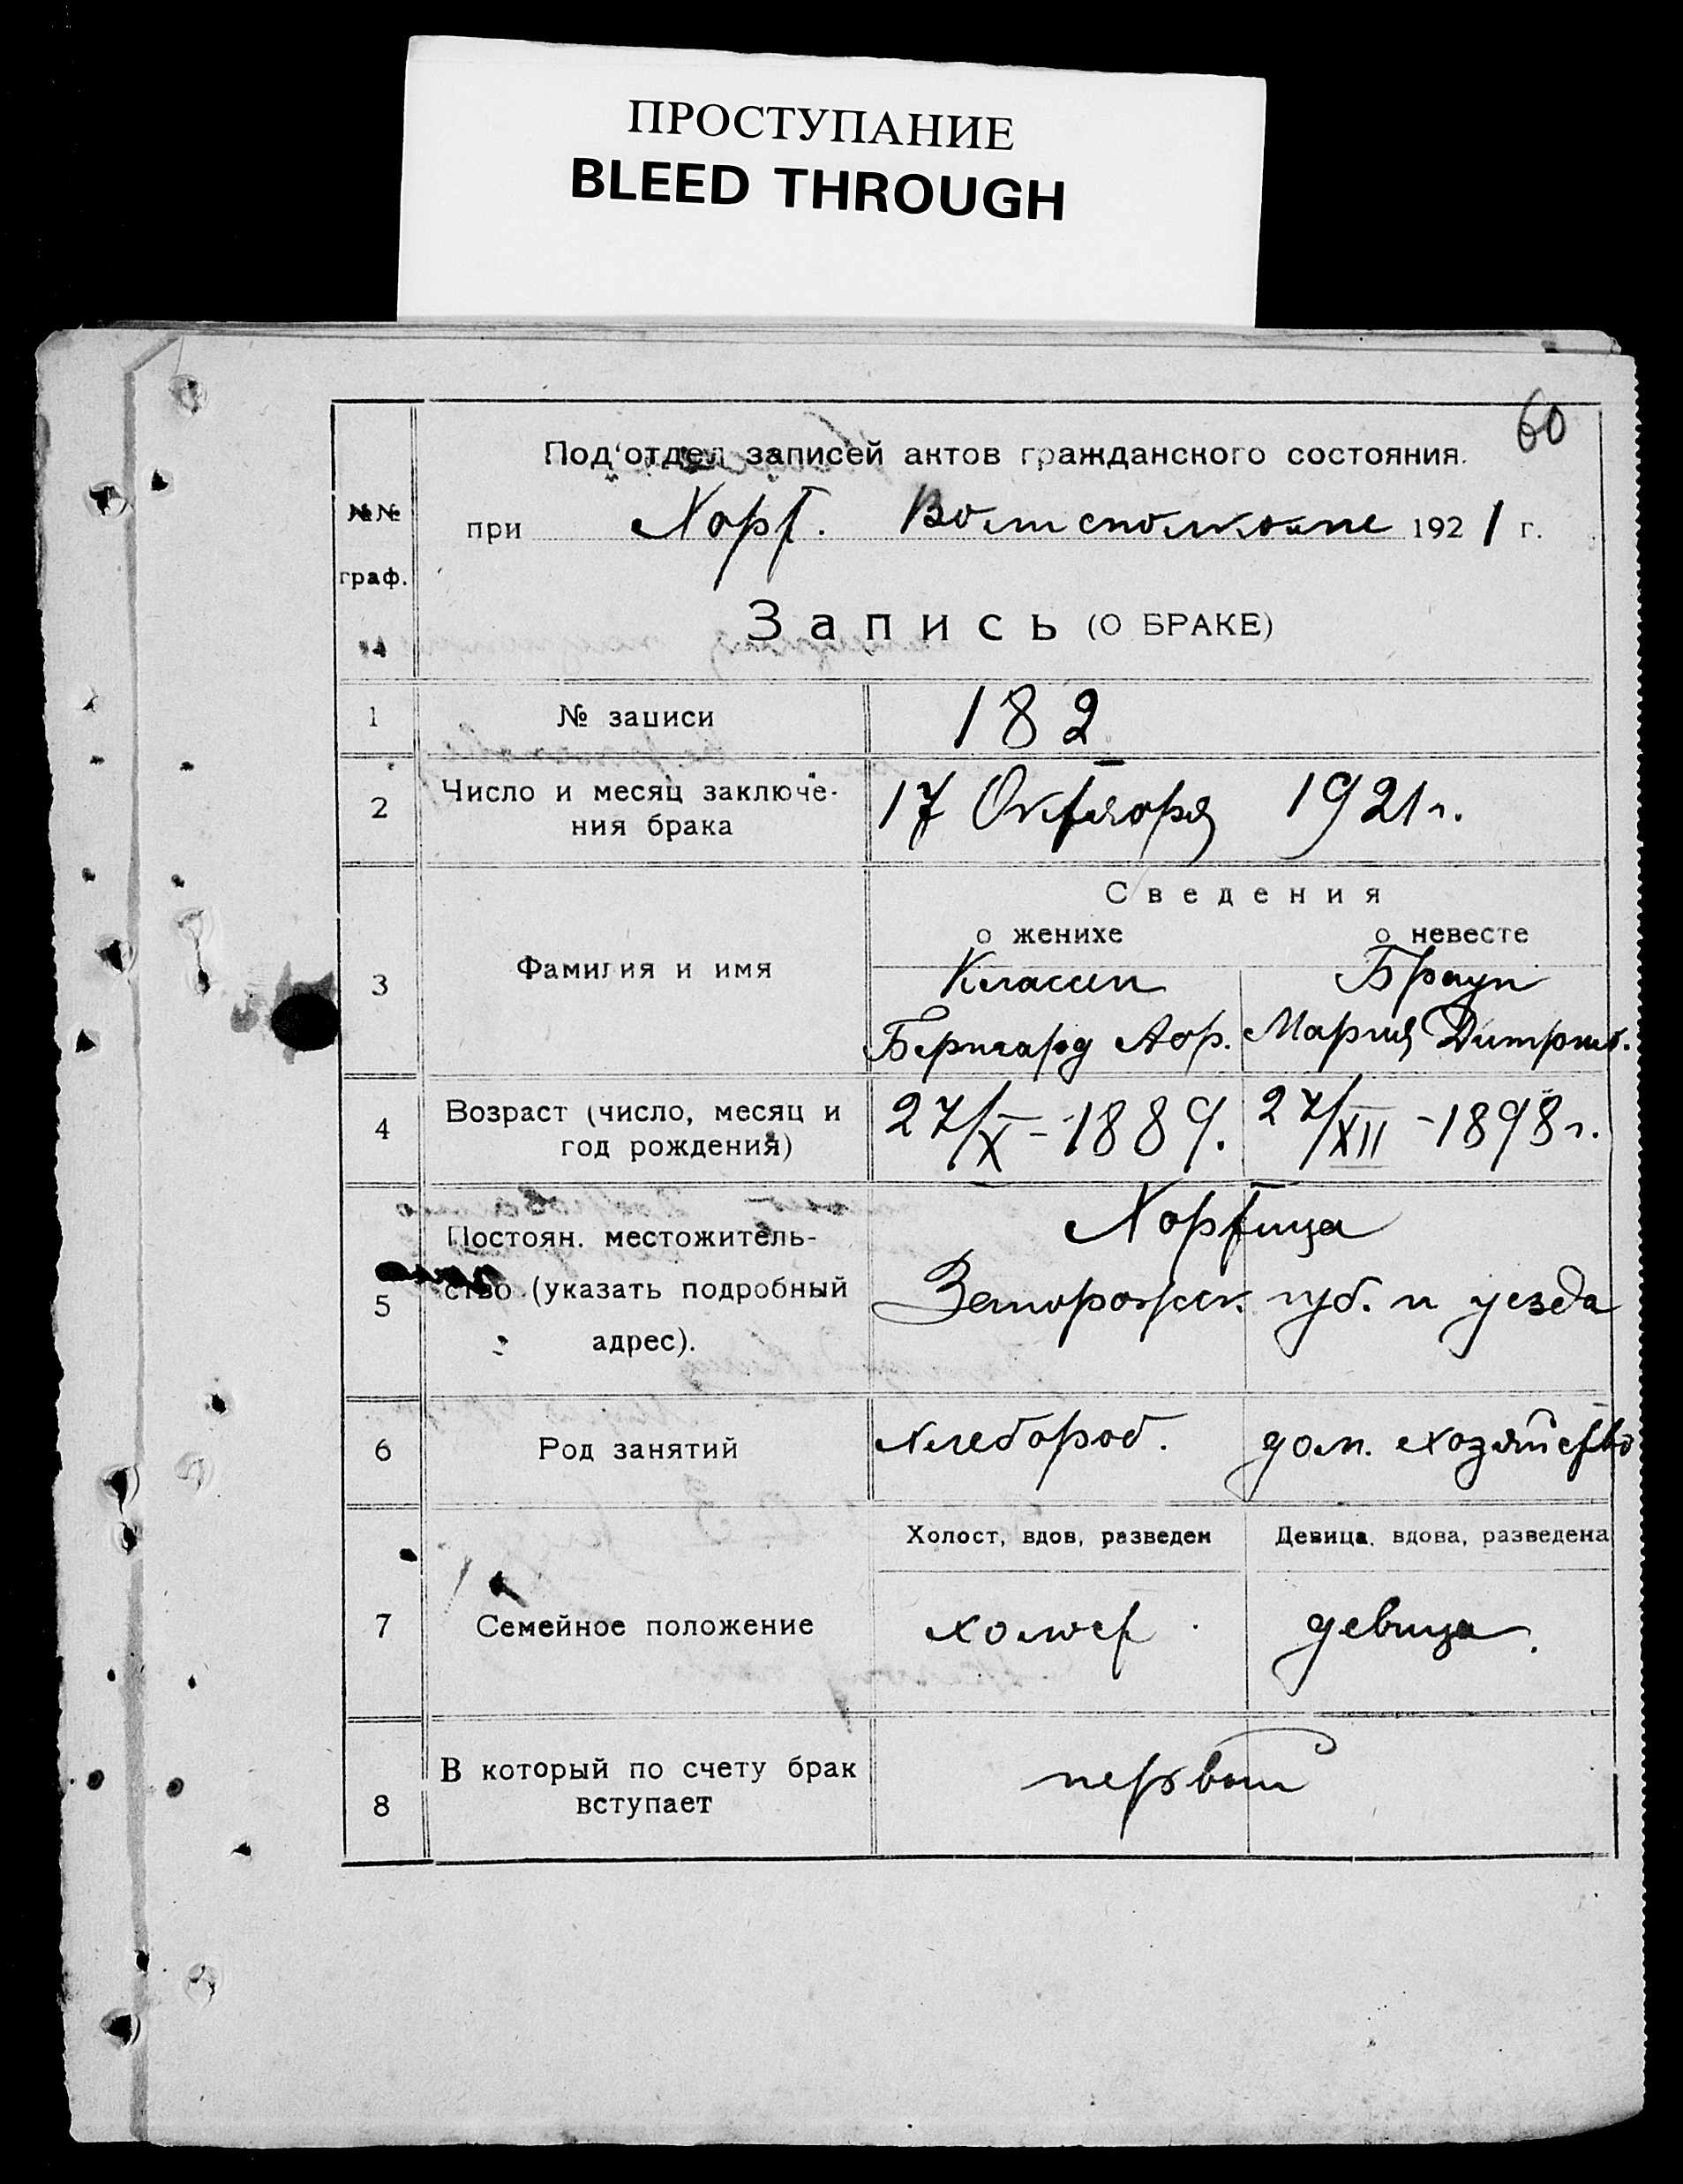 ПРОСТУПАНИЕ
BLEED THROUGH
60
Под'отдел записей актов гражданского состояния.
№№ граф.
при Хорт. Волисполкоме 1921 г.
Запись (О БРАКЕ)
1 № записи 182
2 Число и месяц заключе-
ния брака 17 Октября 1921 г.
Сведения
о женихе о невесте
3 Фамилия и имя Классен Браун
Бернгард Абр. Мария Дитрих.
4 Возраст (число, месяц и
год рождения) 27/X - 1889. 27/XII - 1898 г.
5 Постоян. местожитель-
ство (указать подробный
адрес).
Хортица
Запорожск. губ. и уезда
6 Род занятий хлебороб. дом. хозяйство
Холост, вдов, разведен Девица, вдова, разведена
7 Семейное положение холост девица.
8 В который по счету брак
вступает первый